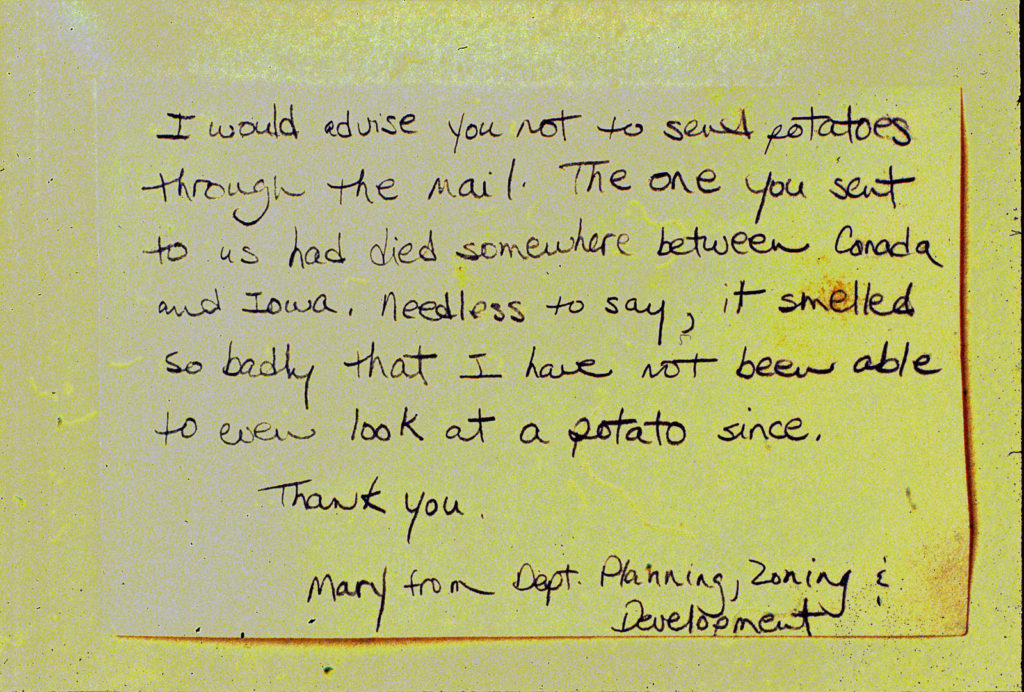 I would advise you not to send potatoes
through the mail. The one you sent
to us had died somewhere between Canada
and Iowa. Needless to say, it smelled
so badly that I have not been able
to even look at a potato since.
Thank you.
Mary from Dept. Planning, Zoning &
Development